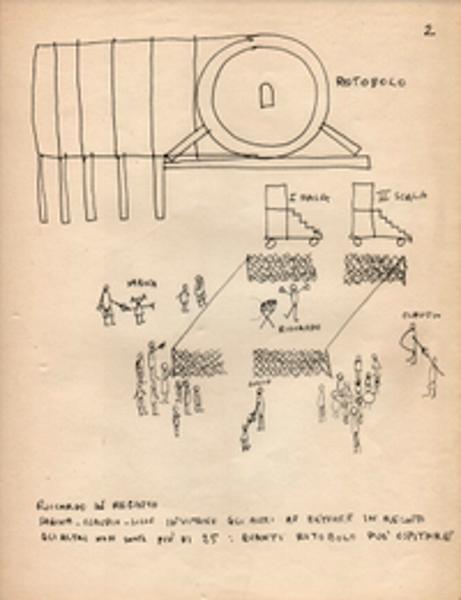 2
ROTOBOLO
I SCALA
II SCALA
MARINA
RICCARDO
CLAUDIO
RICCARDO IN RECINTO
CLAUDIO - INVITANO GLI ALTRI AD ENTRARE IN RECINTO
GLI ALTRI NON SONO PIÙ DI 25 : QUANTI ROTOBOLO PUÒ OSPITARE